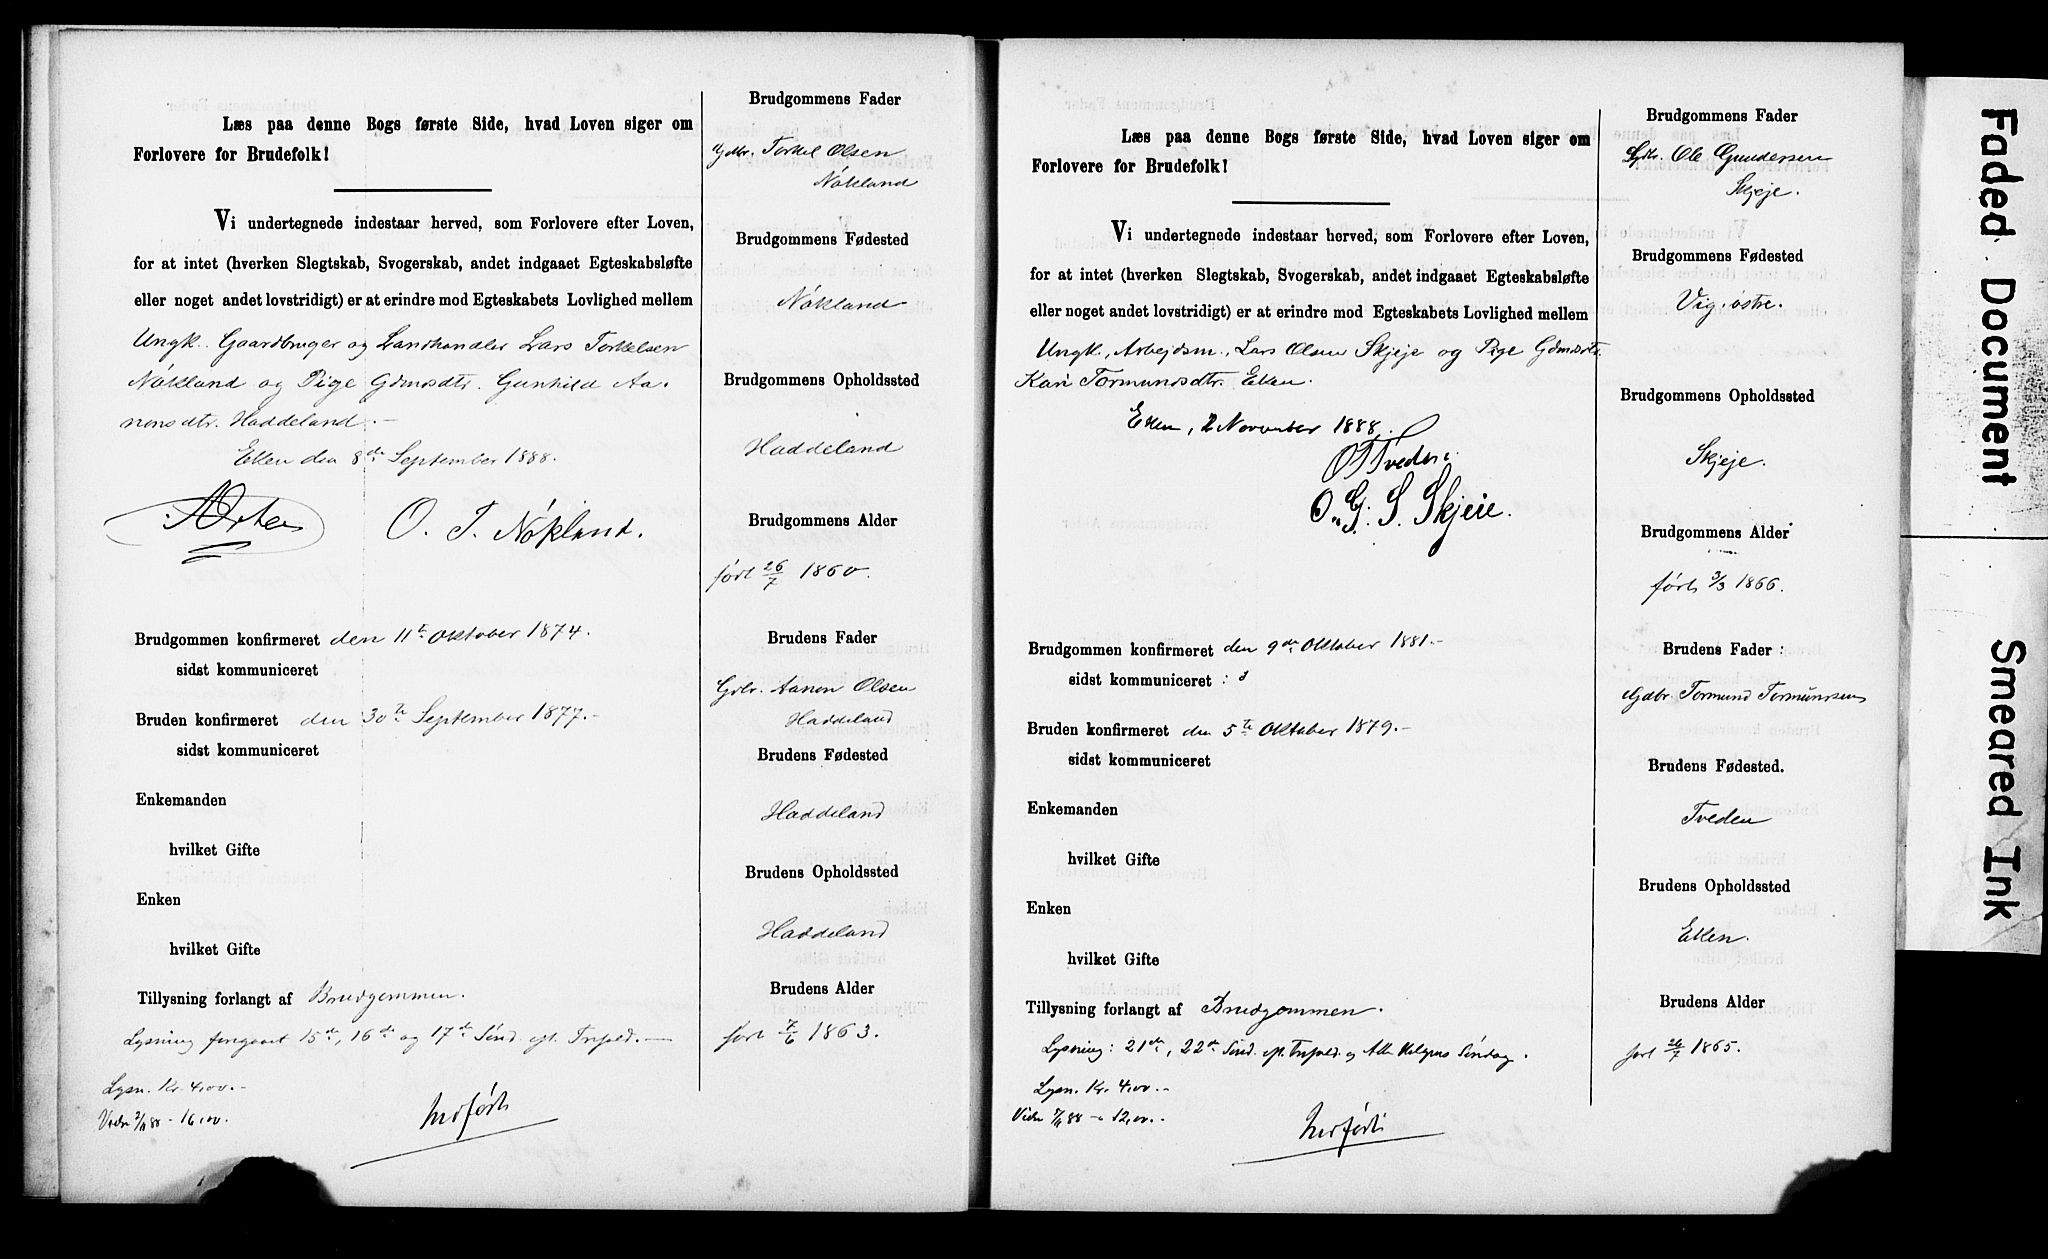 Læs paa denne Bogs første Side, hvad Loven siger om
Forlovere for Brudefolk!
Vi undertegnede indestaar herved, som Forlovere efter Loven,
for at intet (hverken Slegtskab, Svogerskab, andet indgaaet Egteskabsløfte
eller noget andet lovstridigt) er at erindre mod Egteskabets Lovlighed mellem
Ungk. Gaardbruger og Landhandler Lars Torkelsen
Nøkland og Pige Gdmdsdtr. Gunhild Aa-
nensdtr. Haddeland.-
Eken den 8de September 1888.
O. T. Nøkland.
Brudgommen konfirmeret den 11te Oktober 1874.
sidst kommuniceret
Bruden konfirmeret den 30te September 1877.-
sidst kommuniceret
Enkemanden
hvilket Gifte
Enken
hvilket Gifte
Tillysning forlangt af Brudgommen.
Lysning foregaaet 15de, 16de og 17de Sønd. eft. Trefold.-
Lysn. Kr. 4,00.-
Vielse 2/11 88 - 16,00.
Indført
Brudgommens Fader
Gdbr. Torkel Olsen
Nøkland
Brudgommens Fødested
Nøkland
Brudgommens Opholdssted
Haddeland
Brudgommens Alder
født 26/7 1860.
Brudens Fader
Gdbr. Aanen Olsen
Haddeland
Brudens Fødested
Haddeland
Brudens Opholdssted
Haddeland
Brudens Alder
født 7/6 1863.
Læs paa denne Bogs første Side, hvad Loven siger om
Forlovere for Brudefolk!
Vi undertegnede indestaar herved, som Forlovere efter Loven,
for at intet (hverken Slegtskab, Svogerskab, andet indgaaet Egteskabsløfte
eller noget andet lovstridigt) er at erindre mod Egteskabets Lovlighed mellem
Ungk., Arbejdsm., Lars Olsen Skjeje og Pige Gdmdsdtr.
Kari Tormundsdtr. Eken.
Eken, 2 November 1888.
O T Tveden
O. G. S. Skjeie.
Brudgommen konfirmeret den 9de Oktober 1881.-
sidst kommuniceret :
Bruden konfirmeret den 5te Oktober 1879.-
sidst kommuniceret
Enkemanden
hvilket Gifte
Enken
hvilket Gifte
Tillysning forlangt af Brudgommen.
Lysning: 21de, 22de Sønd. eft. Trefold. og Alle Helgens Søndag.
Lysn. Kr. 4,00.-
Vielse 7/11 88 - 12,00.-
Indført
Brudgommens Fader
Gdbr. Ole Gundersen
Skjeje.
Brudgommens Fødested
Vig, østre.
Brudgommens Opholdssted
Skjeje.
Brudgommens Alder
født 3/3 1866.
Brudens Fader :
Gdbr. Tormund Tormundsen
Brudens Fødested.
Tveden
Brudens Opholdssted
Eken.
Brudens Alder
født 26/7 1865.
Faded Document
Smeared Ink